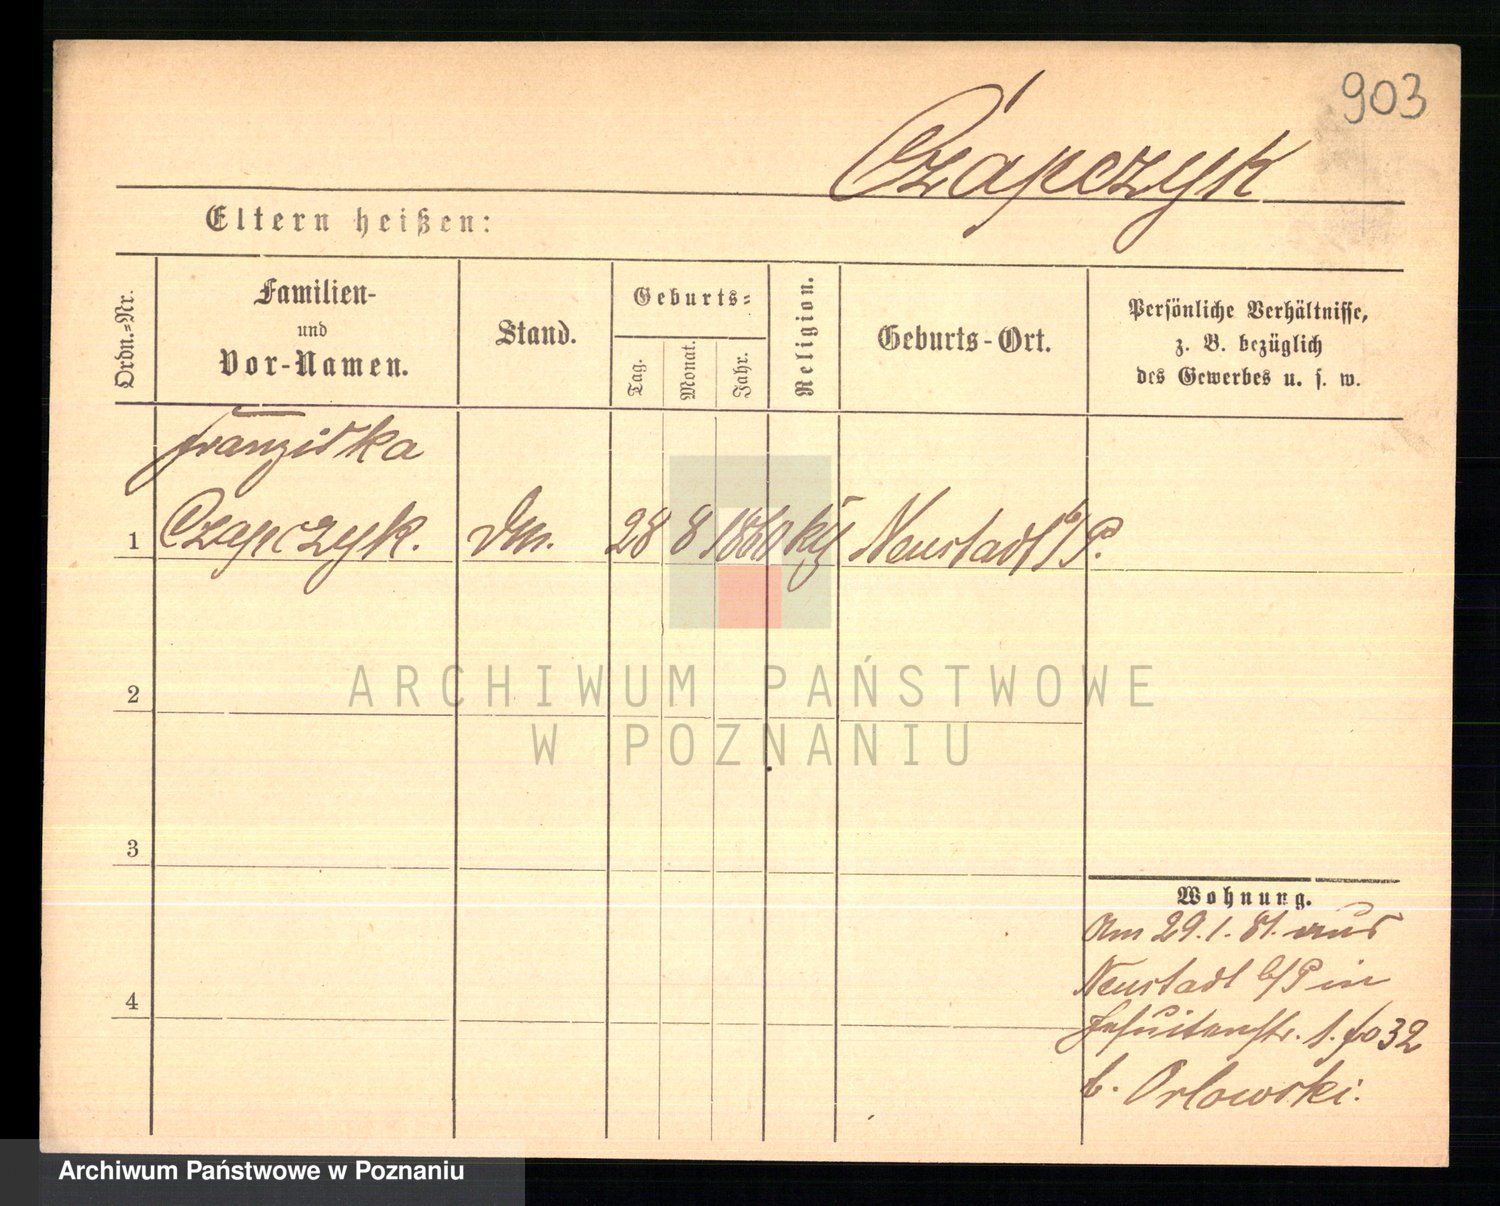 903
Czapczyk
Eltern heißen:
Ordn.=Nr.
Familien-
und
Vor-Namen.
Stand.
Geburts=
Tag.
Monat.
Jahr.
Religion.
Geburts-Ort.
Persönliche Verhältnisse,
z. B. bezüglich
des Gewerbes u. s. w.
Franziska
1 Czapczyk. 28 8 1860 Neustadt b/P.
2
ARCHIWUM PAŃSTWOWE
W POZNANIU
3
4
Wohnung.
Am 29.1.81. aus
Neustadt b/P in
Jesuitenstr. 1. fo 32
b. Orlowski.
Archiwum Państwowe w Poznaniu